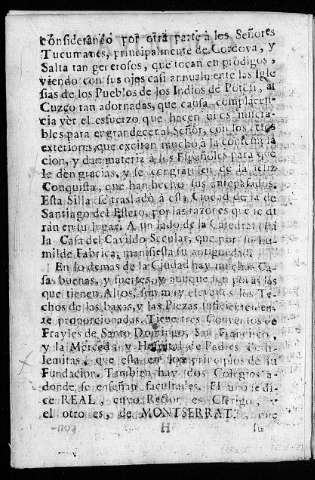 considerando por otra parte à los Señores
Tucumanes, principalmente de Cordova, y
Salta tan generosos, que tocan en prodigos,
viendo con sus ojos casi annualmente las Igle
sias de los Pueblos de los Indios de Potosi, al
Cuzco tan adornadas, que causa complacen-
cia vèr el esfuerzo que hacen unos misera-
bles para engrandecer al Señor, con los
exteriores, que excitan mucho à la contempla
cion, y dan materia à los Españoles para que
le den gracias, y se congratulen de la feliz
Conquista, que han hecho sus antepasados.
Esta Silla se trasladò à esta Ciudad de la de
Santiago del Estero, por las razones que se di
ràn en su lugar. A un lado de la Cathedral està
la Casa del Cavildo Secular, que por su hu
milde Fabrica, manifiesta su antiguedad.
En lo demas de la Ciudad hay muchas Ca-
sas buenas, y fuertes, y aunque son pocas las
que tienen Altos, son muy elevados los Te-
chos de las baxas, y las Piezas suficientemen-
te proporcionadas. Tiene tres Conventos de
Frayles de Santo Domingo, San Francisco,
y la Merced, y Hospital de Padres Be-
lemitas, que està en los principios de su
Fundacion. Tambien hay dos Colegios a-
donde se enseñan facultades. El uno se di-
ce REAL, cuyo Rector es Clerigo, y
el otro es, de MONTSERRAT,
H su